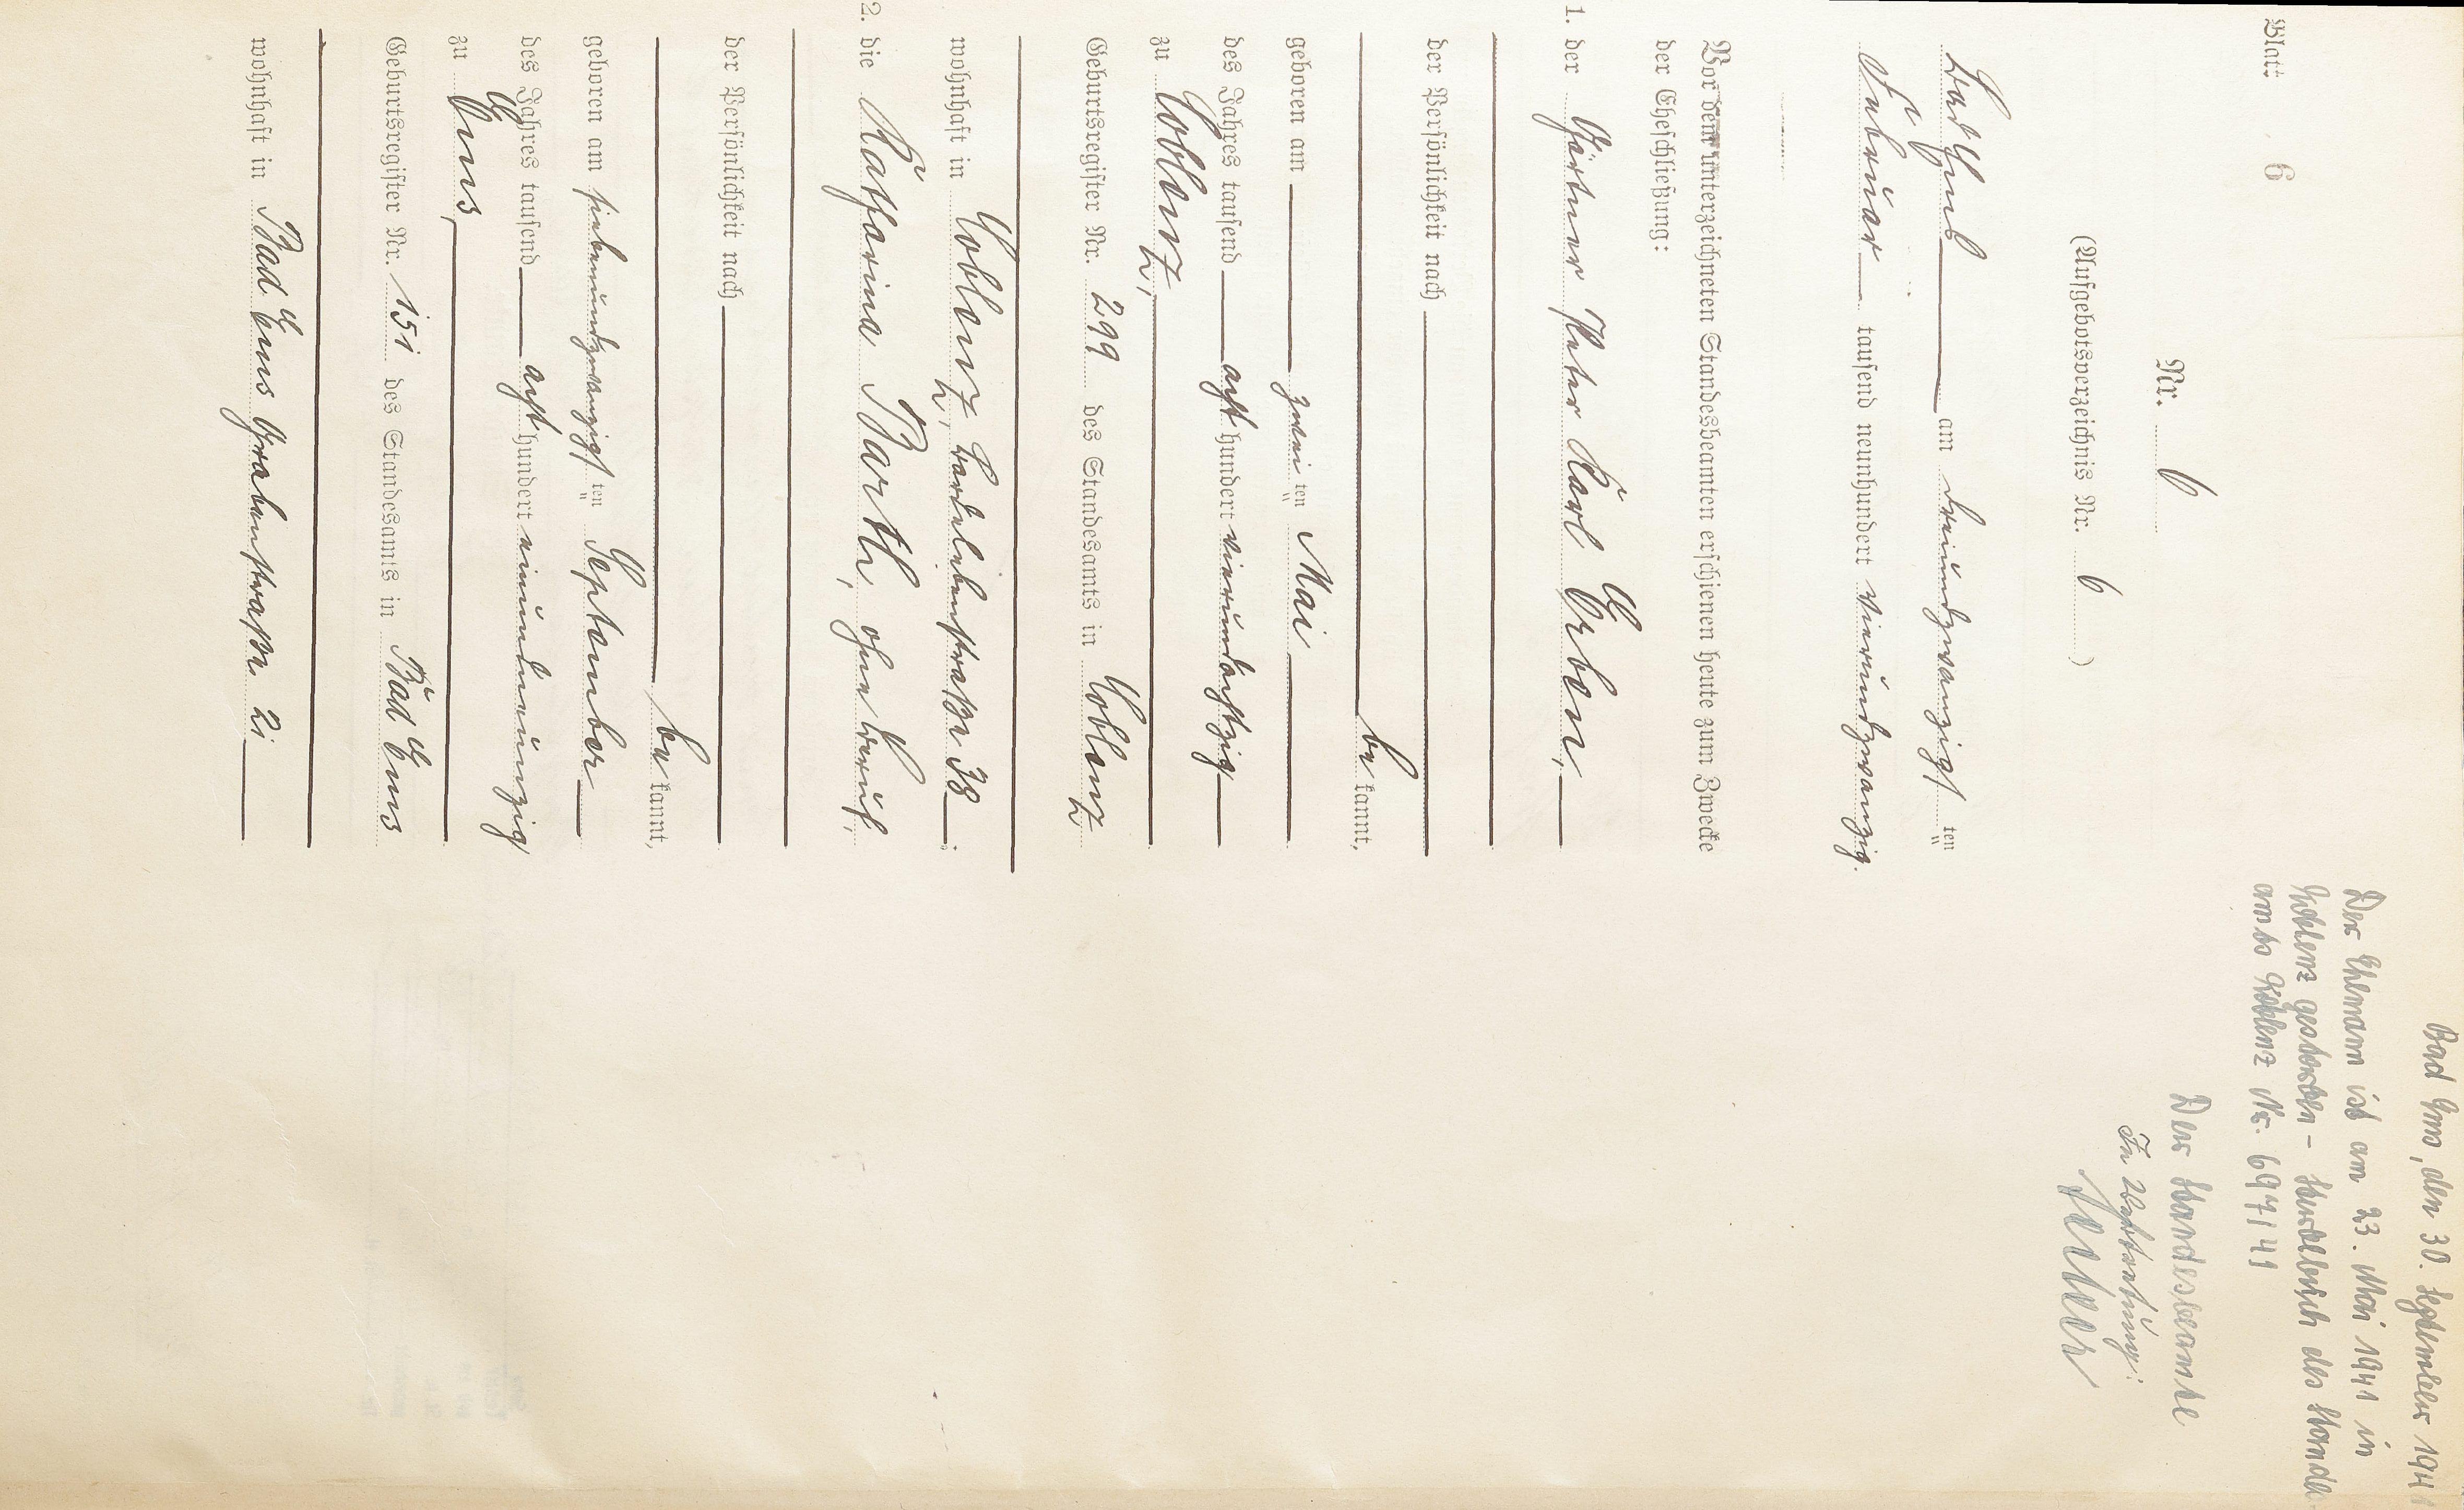 Blatt 6
Nr. 6
(Aufgebotsverzeichnis Nr. 6)
Bad Ems am dreiundzwanzigsten
Februar tausend neunhundert vierundzwanzig.
Vor dem unterzeichneten Standesbeamten erschienen heute zum Zwecke
der Eheschließung:
1. der Gärtner Peter Karl Erben,
der Persönlichkeit nach
be kannt,
geboren am zwei ten Mai
des Jahres tausend acht hundert vierundachtzig
zu Coblenz,
Geburtsregister Nr. 299 des Standesamts in Coblenz,
wohnhaft in Coblenz, Bardelebenstraße 38;
2. die Katharina Barth, ohne Beruf,
der Persönlichkeit nach
be kannt,
geboren am siebenundzwanzigsten September
des Jahres tausend acht hundert einundneunzig
zu Ems,
Geburtsregister Nr. 151 des Standesamts in Bad Ems
wohnhaft in Bad Ems Grabenstraße 21
Bad Ems, den 30. September 1941
Der Ehemann ist am 23. Mai 1941 in
Koblenz gestorben - Sterbebuch des Standes
amts Koblenz Nr. 697/41
Der Standesbeamte
In Vertretung: